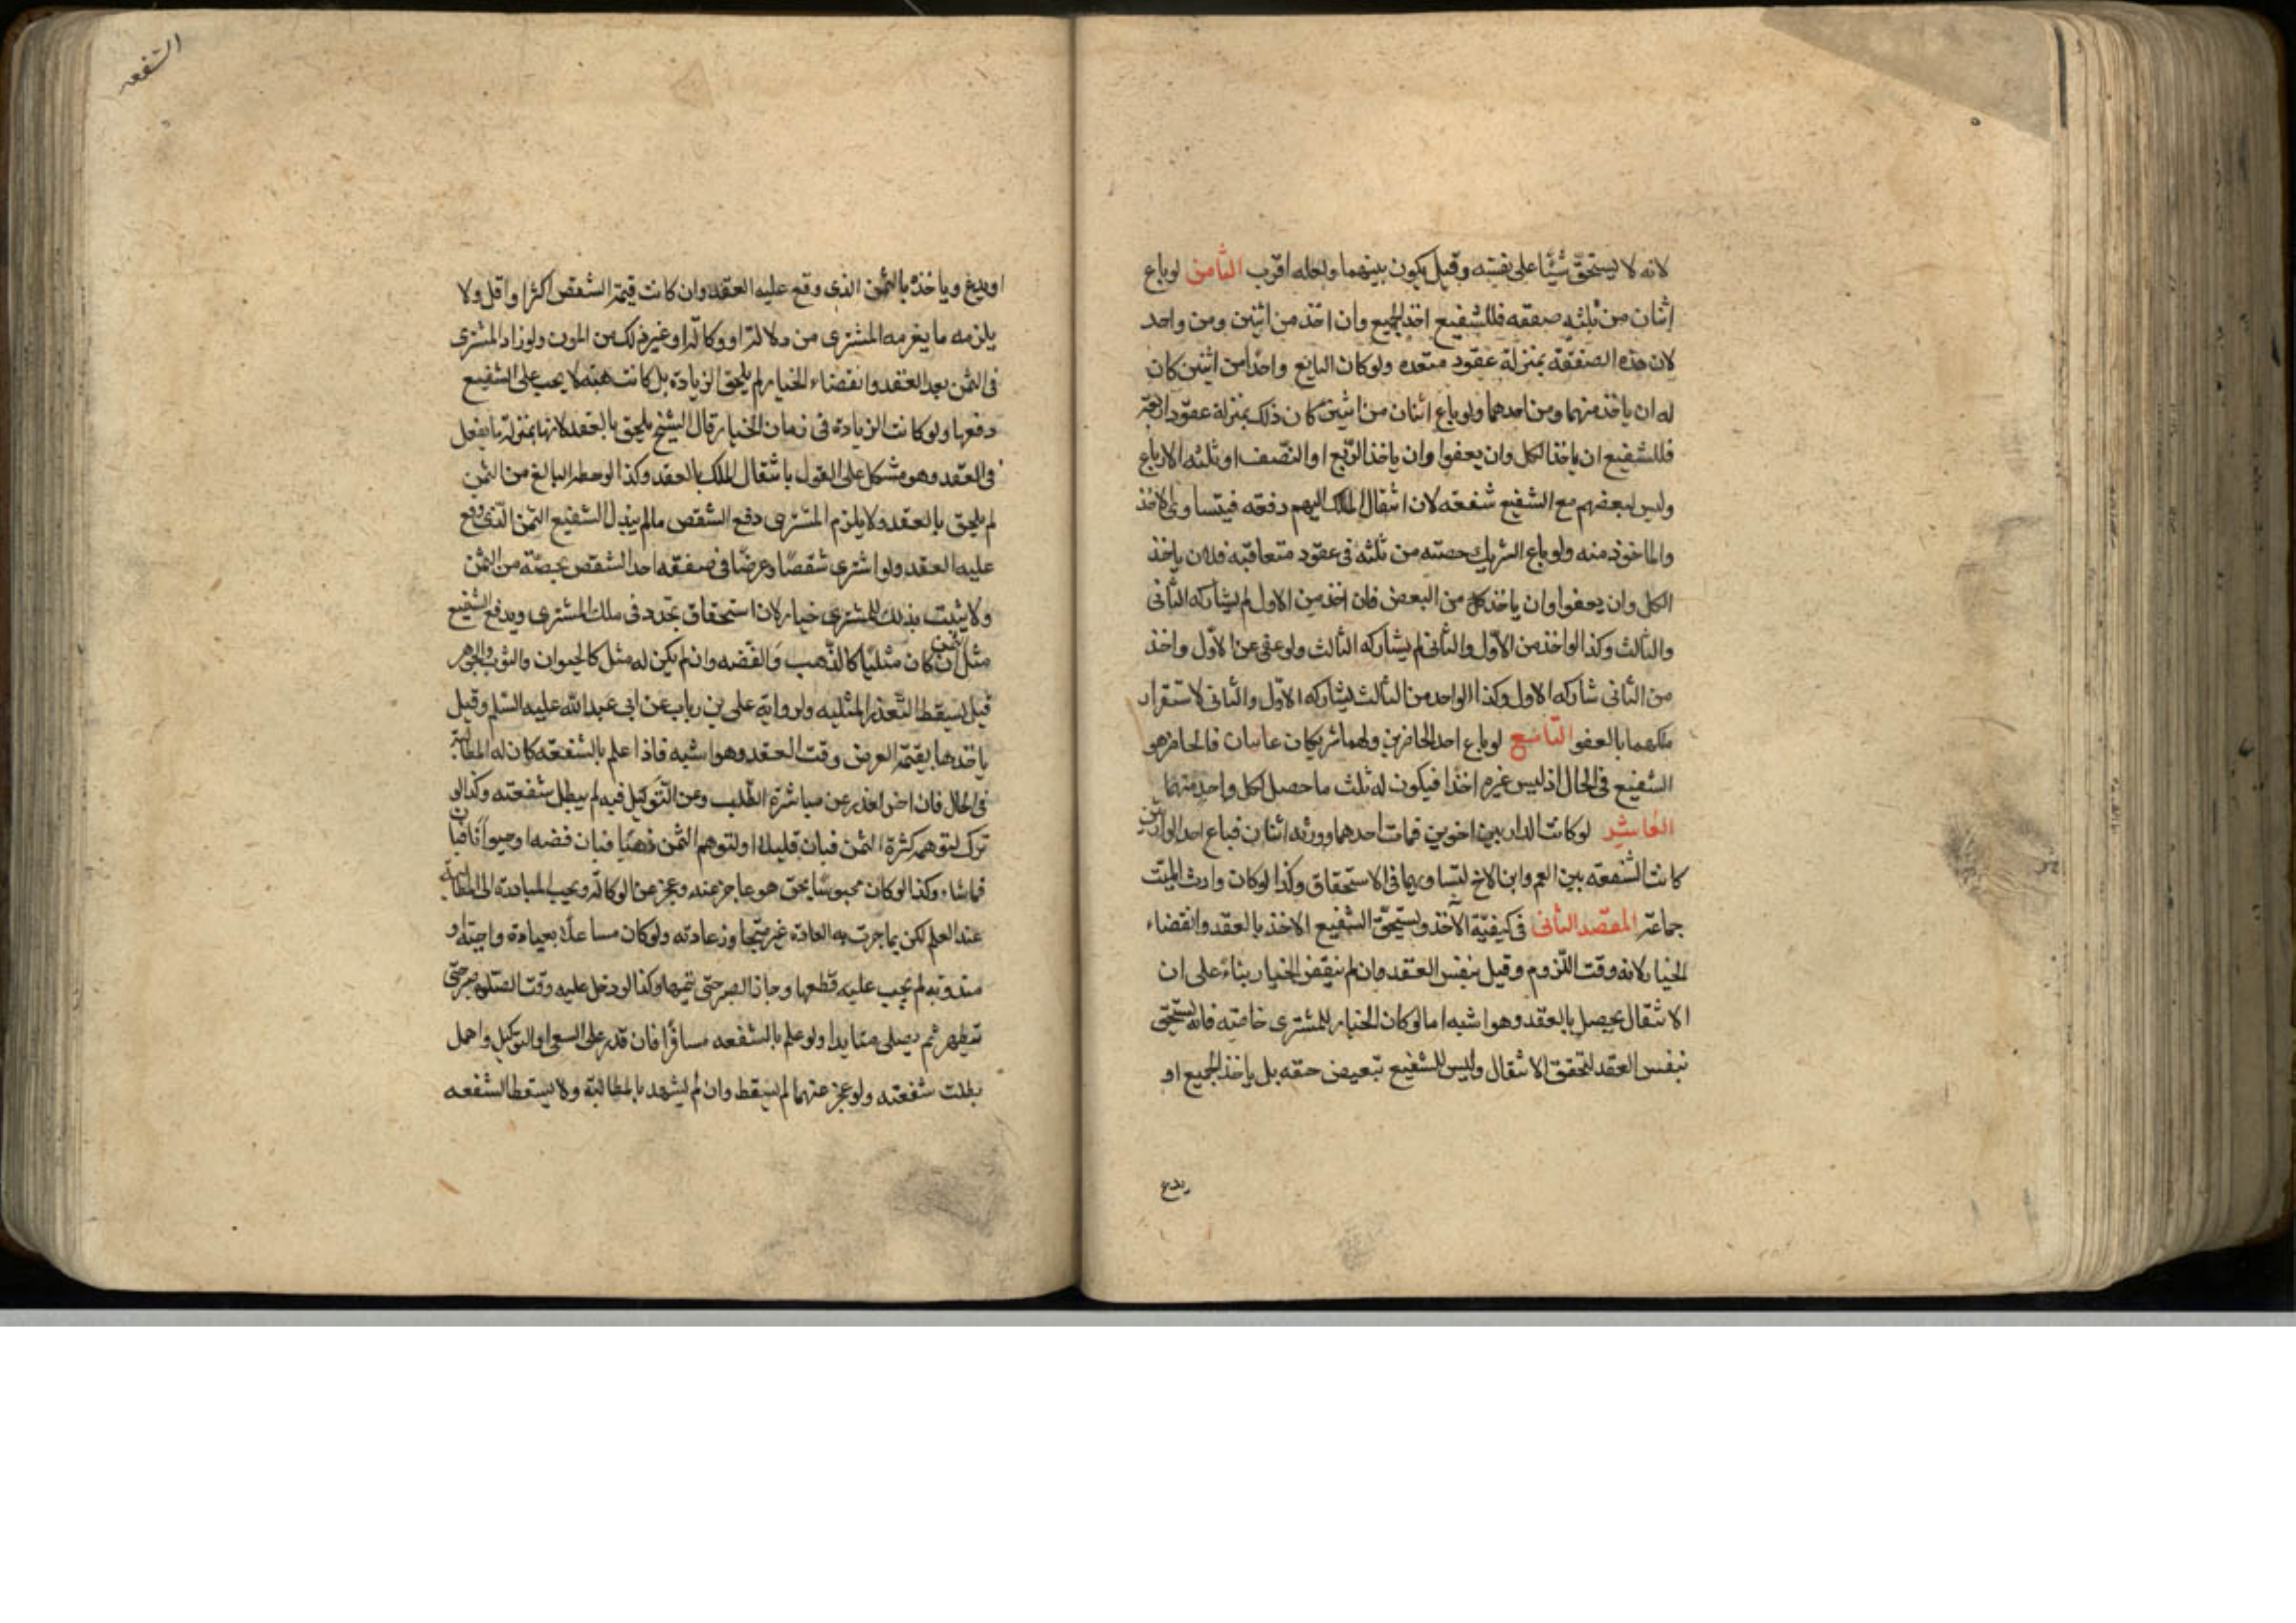 لانه لا يستحق شيئا على نفسه وقيل يكون بينهما ولعله اقرب الثامن لو باع
اثنان من ثلثه صفقه فللشفيع اخذ الجميع وان اخذ من اثنين ومن واحد
لان هذه الصفقة بمنزلة عقود متعدده ولو كان البايع واحدا من اثنين كان
له ان ياخذ منهما ومن احدهما ولو باع اثنان من اثنين كان ذلك بمنزلة عقود اربعة
فللشفيع ان ياخذ الكل وان يعفوا وان ياخذ الربع او النصف او ثلثه الارباع
وليس لبعضهم مع الشفيع شفعه لان انتقال الملك اليهم دفعه فيتساوى الاخذ
والماخوذ منه ولو باع الشريك حصته من ثلثه في عقود متعاقبه فله ان ياخذ
الكل وان يعفوا وان ياخذ من البعض فان اخذ من الاول لم يشاركه الثانى
والثالث وكذا لو اخذ من الاول والثانى لم يشاركه الثالث ولو عفى عن الاول واخذ
من الثانى شاركه الاول وكذا لو اخذ من الثالث يشاركه الاول والثانى لاستقرار
ملكهما بالعفو التاسع لو باع احد الحاضرين ولهما شريكان غايبان فالحاضر هو
الشفيع فى الحال اذ ليس غيره اخذا فيكون له ثلث ما حصل لكل واحد منهما
العاشر لو كانت الدار بين اخوين فمات احدهما وورثه اثنان فباع احد الوارثين
كانت الشفعه بين العم وابن الاخ لتساويهما فى الاستحقاق وكذا لو كان وارث الميت
جماعة المقصد الثانى فى كيفية الاخذ ويستحق الشفيع الاخذ بالعقد وانقضاء
الخيار لانه وقت اللزوم وقيل بنفس العقد وان لم ينقض الخيار بناء على ان
الانتقال يحصل بالعقد وهو اشبه اما لو كان الخيار للمشترى خاصه فانه يستحق
بنفس العقد لتحقق الانتقال وليس للشفيع تبعيض حقه بل ياخذ الجميع او
يدع
الشفعه
او يدع وياخذ بالثمن الذى وقع عليه العقد وان كانت قيمة الشقص اكثر او اقل ولا
يلزمه ما يغرمه المشترى من دلالة او وكالة او غير ذلك من المون ولو زاد المشترى
فى الثمن بعد العقد وانقضاء الخيار لم يلحق الزيادة بل كانت هبة لا يجب على الشفيع
دفعها ولو كانت الزيادة فى زمان الخيار قال الشيخ يلحق بالعقد لانها بمنزلة ما يفعل
فى العقد وهو مشكل على القول بانتقال الملك بالعقد وكذا لو حط البايع من الثمن
لم يلحق بالعقد ولا يلزم المشترى دفع الشقص ما لم يبذل الشفيع الثمن الذى وقع
عليه العقد ولو اشترى شقصا وعرضا فى صفقه اخذ الشقص بحصته من الثمن
ولا يثبت بذلك للمشترى خيار لان استحقاق تجدد فى ملك المشترى ويدفع الشفيع
مثل الثمن ان كان مثليا كالذهب والفضه وان لم يكن له مثل كالحيوان والثوب والجوهر
قيل يسقط لتعذر المثليه ولروايه على بن رياب عن ابى عبد الله عليه السلم وقيل
ياخذها بقيمة العرض وقت العقد وهو اشبه فاذا علم بالشفعه كان له المطالبة
فى الحال فان اخر لعذر عن مباشرة الطلب وعن التوكيل فيه لم يبطل شفعته وكذا لو
ترك لتوهمه كثرة الثمن فبان قليلا او لتوهم الثمن ذهبا فبان فضه او حيوانا فبان
قماشا وكذا لو كان محبوسا بحق هو عاجز عنه وعجز عن الوكالة ويجب المبادرة الى المطالبة
عند العلم لكن بما جرت به العادة غير متجاوز عادته ولو كان متشاغلا بعبادة واجبة او
مندوبه لم يجب عليه قطعها وجاز الصبر حتى يتمها وكذا لو دخل عليه وقت الصلوة صبر حتى
يتطهر ثم يصلى متئدا ولو علم بالشفعه مسافرا فان قدر على السعى او التوكيل واهمل
بطلت شفعته ولو عجز عنهما لم يسقط وان لم يشهد بالمطالبة ولا يسقط الشفعه